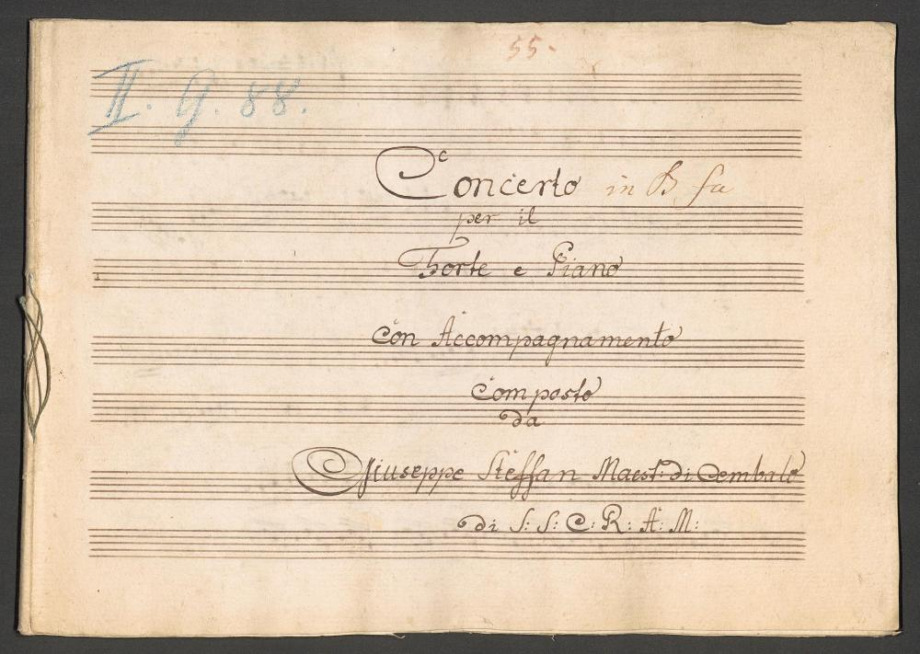 55-
II. G. 88.
Concerto in B fa
per il
Forte e Piano
Con Accompagnamento
Composto
da
Giuseppe Steffan Maest: di Cembalo
di S: S: C: R: A: M: